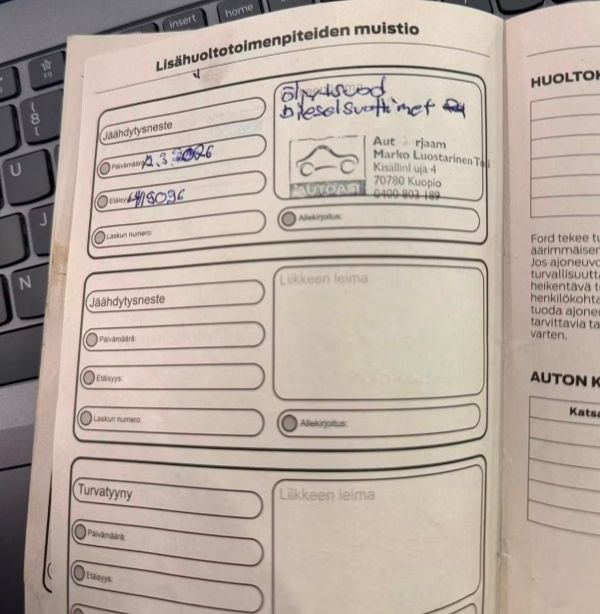 insert
home
F9
8
U
J
N
Lisähuoltotoimenpiteiden muistio
Jäähdytysneste
Päivämäärä
Etäisy
Laskun numero:
Aut rjaam
Marko Luostarinen
Kisällin uja 4
70780 Kuopio
0400 803 189
AUTOASI
Allekirjoitus:
Jäähdytysneste
Päivämäärä:
Etäisyys:
Laskun numero:
Liikkeen leima
Allekirjoitus:
Turvatyyny
Päivämäärä:
Etäisyys:
Liikkeen leima
HUOLTO
Ford tekee
äärimmäise
Jos ajoneuvo
turvallisuutt
heikentävä
henkilökohta
tuoda ajone
tarvittavia ta
varten.
AUTON K
Katsa